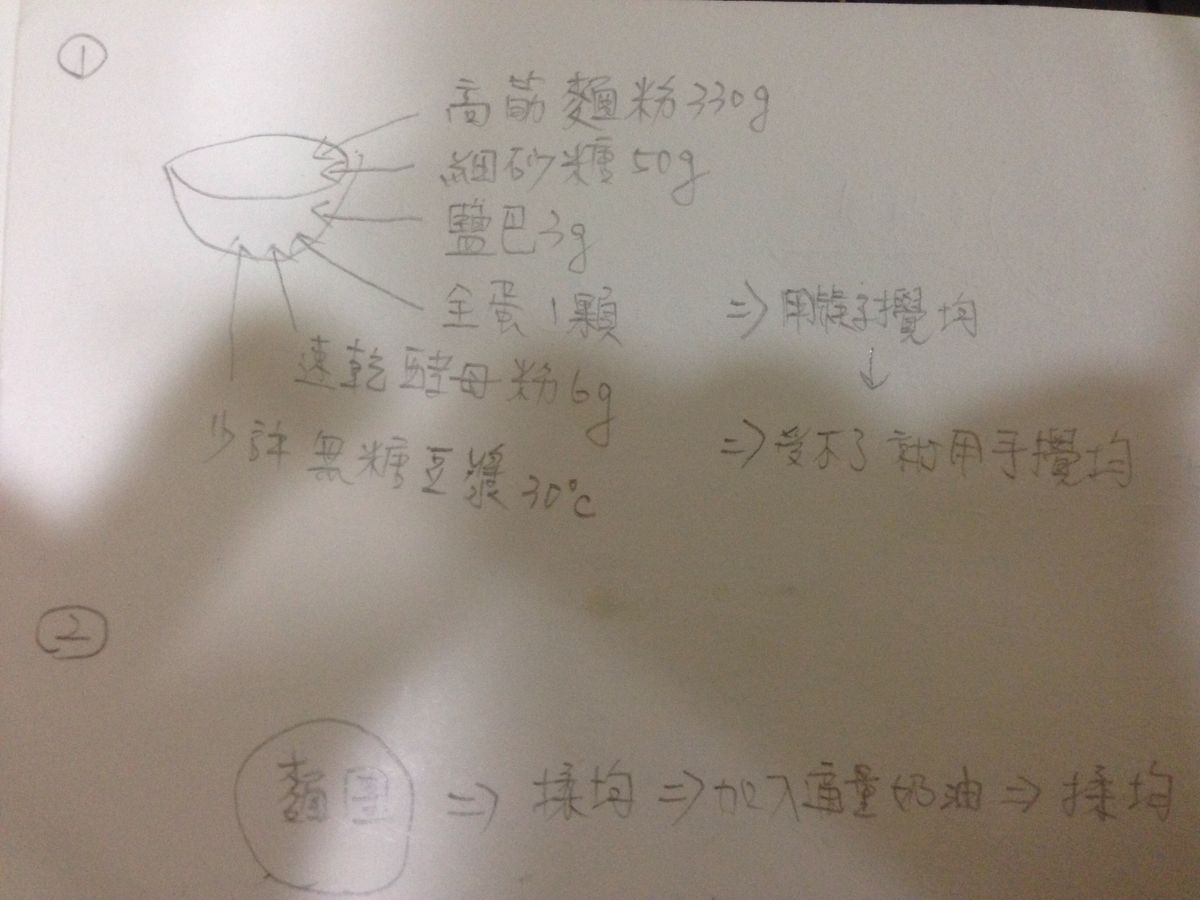 ①
高筋麵粉330g
細砂糖50g
鹽巴3g
全蛋1顆
速乾酵母粉6g
少許無糖豆漿30°C
⇒用筷子攪均
↓
⇒受不了就用手攪均
②
麵團⇒揉均⇒加入適量奶油⇒揉均